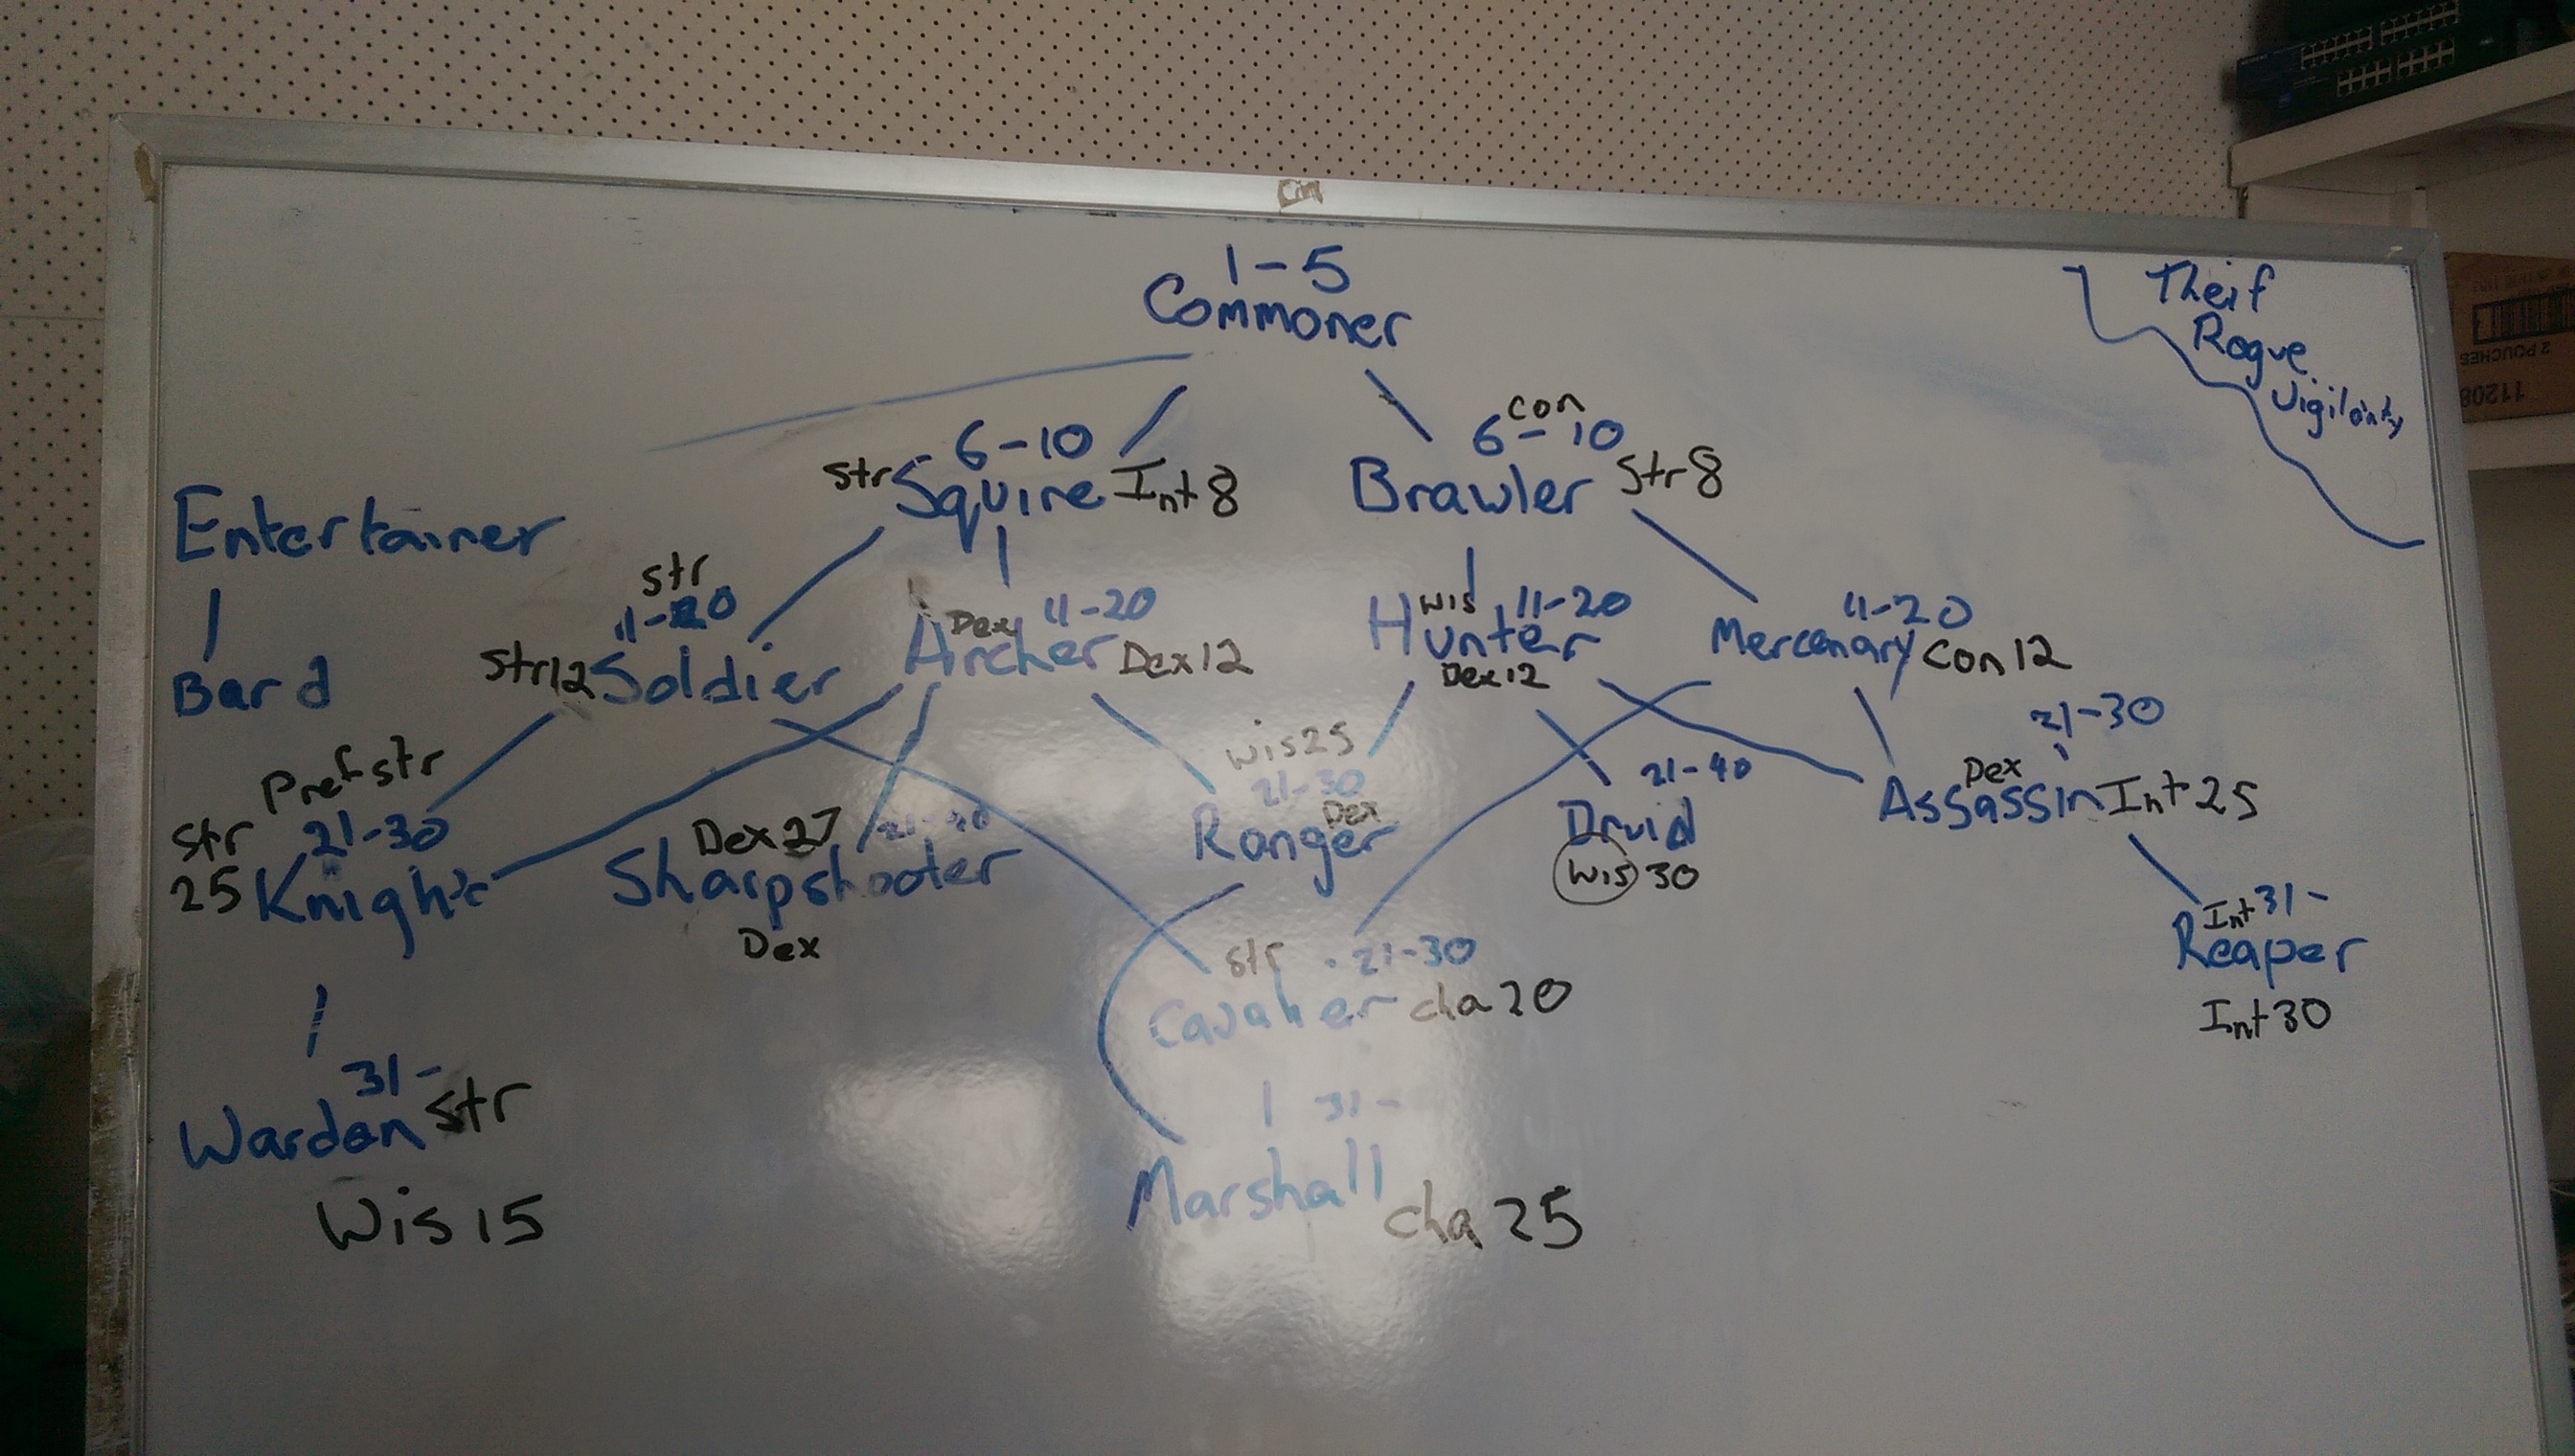 1-5
Commoner
Theif
Rogue
Vigilanty
6-10
Str Squire Int 8
con
6-10
Brawler Str 8
Entertainer
Bard
Str
11-20
Str12 Soldier
Dex 11-20
Archer Dex12
Wis 11-20
Hunter
Dex12
11-20
Mercenary Con12
Pref str
Str 21-30
25 Knight
Dex27
Sharpshooter
Dex
Wis25
21-30
Dex
Ranger
21-40
Druid
Wis 30
21-30
Dex
Assassin Int 25
Int 31-
Reaper
Int 30
str 21-30
Cavalier cha 20
31-
Warden Str
Wis 15
31-
Marshall
cha 25
2 POUCHES